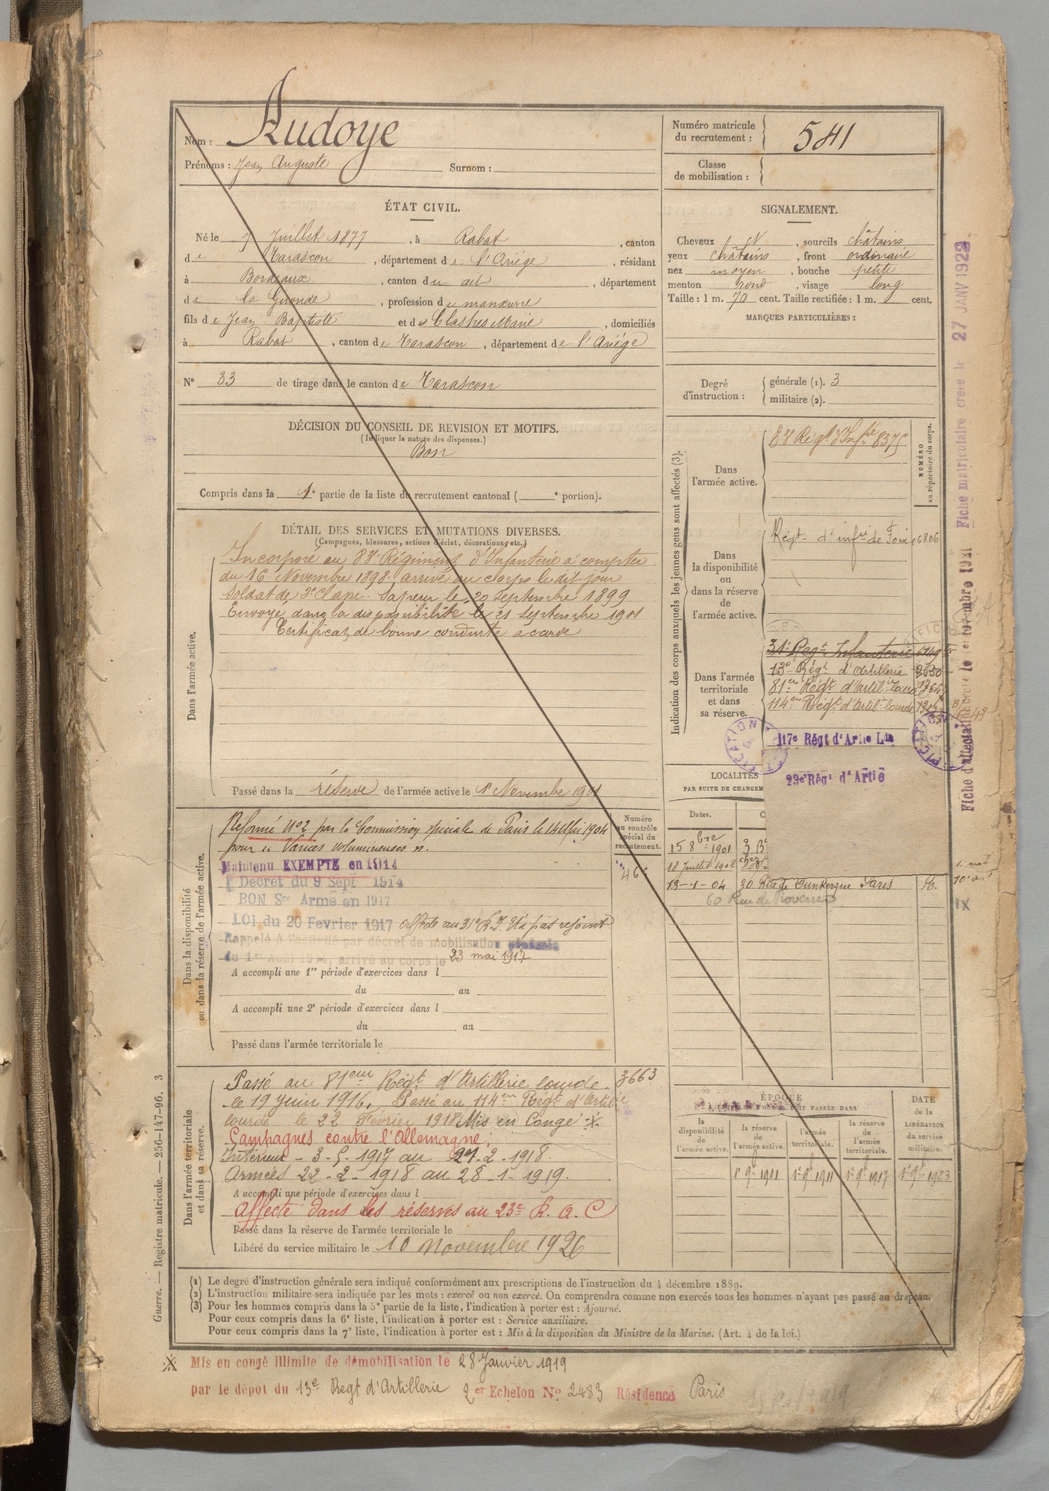 Nom : Audoye
Prénoms : Jean Auguste Surnom :
Numéro matricule du recrutement : 541
Classe de mobilisation :
ÉTAT CIVIL.
Né le 7 Juillet 1877, à Rabat, canton
de Tarascon, département de l'Ariége, résidant
à Bordeaux, canton du dit, département
de la Gironde, profession de manœuvre
fils de Jean Baptiste et de Clastres Marie, domiciliés
à Rabat, canton de Tarascon, département de l'Ariége
N° 33 de tirage dans le canton de Tarascon
SIGNALEMENT.
Cheveux N, sourcils châtains
yeux châtains, front ordinaire
nez moyen, bouche petite
menton rond, visage long
Taille : 1 m. 70 cent. Taille rectifiée : 1 m. cent.
MARQUES PARTICULIÈRES :
Degré d'instruction : générale (1). 3
militaire (2).
DÉCISION DU CONSEIL DE REVISION ET MOTIFS.
(Indiquer la nature des dispenses.)
Bon
Compris dans la 1e partie de la liste du recrutement cantonal ( e portion).
DÉTAIL DES SERVICES ET MUTATIONS DIVERSES.
(Campagnes, blessures, actions d'éclat, décorations, etc.)
Dans l'armée active.
Incorporé au 83e Régiment d'Infanterie à compter
du 16 Novembre 1898 arrivé au Corps le dit jour
soldat de 2e Classe. Sapeur le 20 Septembre 1899
Envoyé dans la disponibilité le 21 Septembre 1901
Certificat de bonne conduite accordé
Passé dans la réserve de l'armée active le 1er Novembre 1901
Indication des corps auxquels les jeunes gens sont affectés (3).
NUMÉRO au répertoire du corps.
Dans l'armée active.
83e Régt d'Infrie 8375
Dans la disponibilité ou dans la réserve de l'armée active.
Régt d'infrie de Foix 06806
Dans l'armée territoriale et dans sa réserve.
31e Régt Infanterie
13e Régt d'Artillerie
81e Régt d'Artil. Lourde
114e Régt d'Artil. lourde
117e Régt d'Artie Lde
23e Régt d'Artie
LOCALITÉS
PAR SUITE DE CHANGEM
Dates.
15 8bre 1901
11 Juillet 1902
13-1-04 30 Rue de Dunkerque Paris
60 Rue de Provence
Dans la disponibilité ou dans la réserve de l'armée active.
Numéro au contrôle spécial du recrutement.
Réformé No 2 par la Commission spéciale de Paris le 14 Mai 1904
pour « Varices volumineuses ».
Maintenu EXEMPTÉ en 1914
Décret du 9 Sept 1914
BON Sce Armé en 1917
LOI du 20 Février 1917 affecté au 31e R.I. N'a pas rejoint
Rappelé à l'activité par décret de mobilisation générale
du 1er Août 1914, arrivé au corps le 23 mai 1917
A accompli une 1re période d'exercices dans l
du au
A accompli une 2e période d'exercices dans l
du au
Passé dans l'armée territoriale le
Dans l'armée territoriale et dans sa réserve.
Passé au 81eme Régt d'Artillerie lourde 3663
le 19 juin 1916. Passé au 114em Régt d'Artie
lourde le 22 Février 1918 Mis en Congé
Campagnes contre l'Allemagne :
Intérieur - 3-5-1917 au 21-2-1918.
Armées 22-2-1918 au 28-1-1919.
A accompli une période d'exercices dans l
Affecté dans les réserves au 23e R.A.C
Passé dans la réserve de l'armée territoriale le
Libéré du service militaire le 10 Novembre 1926
ÉPOQUE
la disponibilité de l'armée active.
la réserve de l'armée active.
l'armée territoriale.
la réserve de l'armée territoriale.
DATE de la LIBÉRATION du service militaire.
(1) Le degré d'instruction générale sera indiqué conformément aux prescriptions de l'instruction du 4 décembre 1889.
(2) L'instruction militaire sera indiquée par les mots : exercé ou non exercé. On comprendra comme non exercés tous les hommes n'ayant pas passé au drapeau.
(3) Pour les hommes compris dans la 5e partie de la liste, l'indication à porter est : Ajourné.
Pour ceux compris dans la 6e liste, l'indication à porter est : Service auxiliaire.
Pour ceux compris dans la 7e liste, l'indication à porter est : Mis à la disposition du Ministre de la Marine. (Art. 4 de la loi.)
Mis en congé illimité de démobilisation le 28 Janvier 1919
par le dépot du 13e Regt d'Artillerie 2er Echelon No 2483 Résidence Paris
Guerre. — Registre matricule. — 256-147-96. 3
Fiche matriculaire créée le 27 JANV 1922